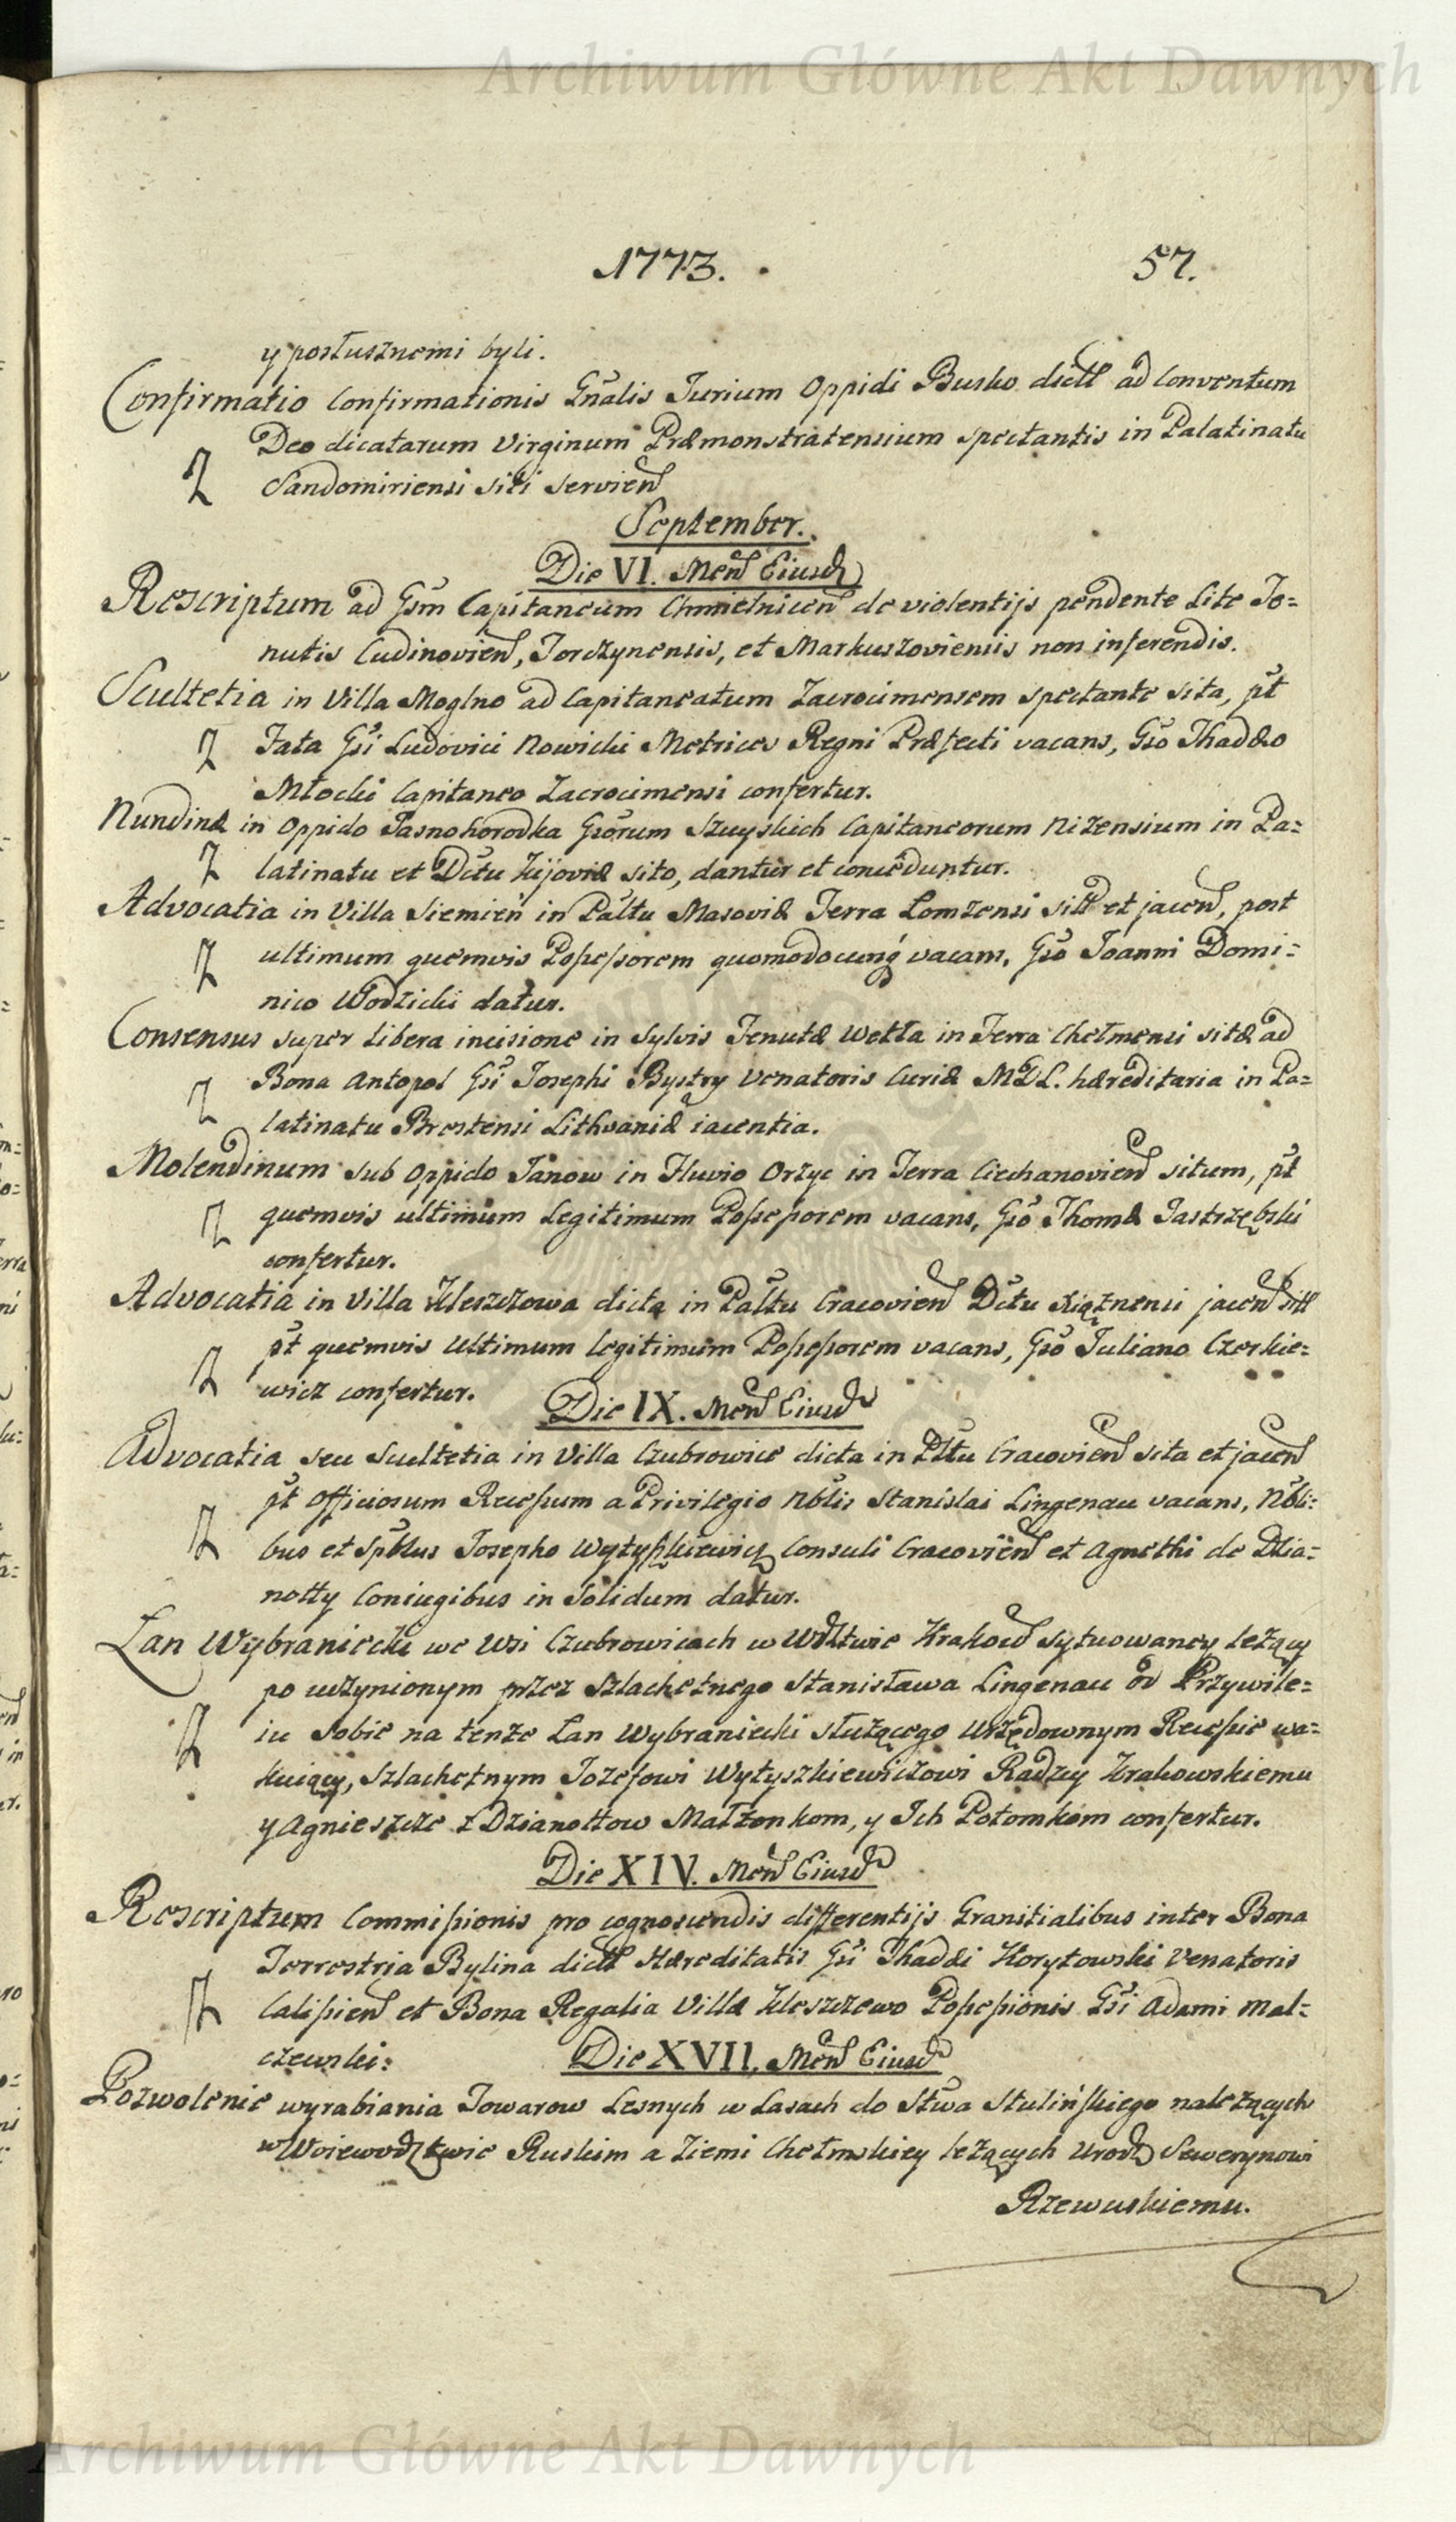 Archiwum Główne Akt Dawnych
1773. 57.
y posłusznemi byli.
Confirmatio Confirmationis Gñalis Jurium Oppidi Busko dict ad Conventum
Deo dicatarum Virginum Præmonstratensium spectantis in Palatinatu
Sandomiriensi siti servien
September.
Die VI. Men Eiusd
Rescriptum ad Gsm Capitaneum Chmielnicen de violentijs pendente Lite Te=
nutis Cudinovien, Torczynensis, et Markuszoviensis non inferendis.
Scultetia in Villa Moglno ad Capitaneatum Zacrocimensem spectante sita, pt
Fata Gsi Ludovici Nowicki Metrices Regni Præfecti vacans, Gso Thaddæo
Młocki Capitaneo Zacrocimensi confertur.
Nundinæ in Oppido Jasnohorodka Gsorum Szuyskich Capitaneorum Nizensium in Pa=
latinatu et Dctu Kijoviæ sito, dantur et conceduntur.
Advocatia in Villa Siemien in Paltu Masoviæ Terra Lomzensi sit et jacen, post
ultimum quemvis Possessorem quomodocunq vacans, Gso Joanni Domi=
nico Wodzicki datur.
Consensus super Libera incisione in Sylvis Tenutæ Wetła in Terra Chełmensi sitæ ad
Bona Antopol Gsi Josephi Bystry Venatoris Curiæ MDL. hæreditaria in Pa=
latinatu Brestensi Lithvaniæ iacentia.
Molendinum sub Oppido Janow in Fluvio Orzyc in Terra Ciechanovien situm, pt
quemvis ultimum Legitimum Possessorem vacans, Gso Thomæ Jastrzębski
confertur.
Advocatia in Villa Kleszczowa dicta in Paltu Cracovien Dctu Xiąznensi jacen sit
pt quemvis Ultimum legitimum Possessorem vacans, Gso Juliano Czerkie=
wicz confertur.
Die IX. Men Eiusd
Advocatia seu Scultetia in Villa Czubrowice dicta in Pltu Cracovien sita et jacen
pt Officiosum Recessum a Privilegio Nblis Stanislai Lingenau vacans, Nbli=
bus et Spblus Josepho Wytyszkiewicz Consuli Cracovien et Agnethi de Dzia=
notty Coniugibus in Solidum datur.
Lan Wybraniecki we Wsi Czubrowicach w Wdztwie Krakow sytuowaney leżący
po uczynionym przez Szlachetnego Stanisława Lingenau od Przywile=
iu Sobie na tenze Lan Wybraniecki służącego Urzędownym Recessie wa=
kuiący, Szlachetnym Jozefowi Wytyszkiewiczowi Radzcy Krakowskiemu
y Agnieszce z Dzianottow Małżonkom, y Ich Potomkom confertur.
Die XIV. Men Eiusd
Rescriptum Commissionis pro cognoscendis differentijs Granitialibus inter Bona
Terrestria Bylina dict Hæreditatis Gsi Thaddæi Korytowski Venatoris
Calissien et Bona Regalia Villæ Kleszczewo Possessionis Gsi Adami Mal=
czewski:
Die XVII. Men Eiusd
Pozwolenie wyrabiania Towarow Lesnych w Lasach do Stwa Stulińskiego należących
w Woiewodztwie Ruskim a Ziemi Chełmskiey leżących Urodz Sewerynowi
Rzewuskiemu.
Archiwum Główne Akt Dawnych